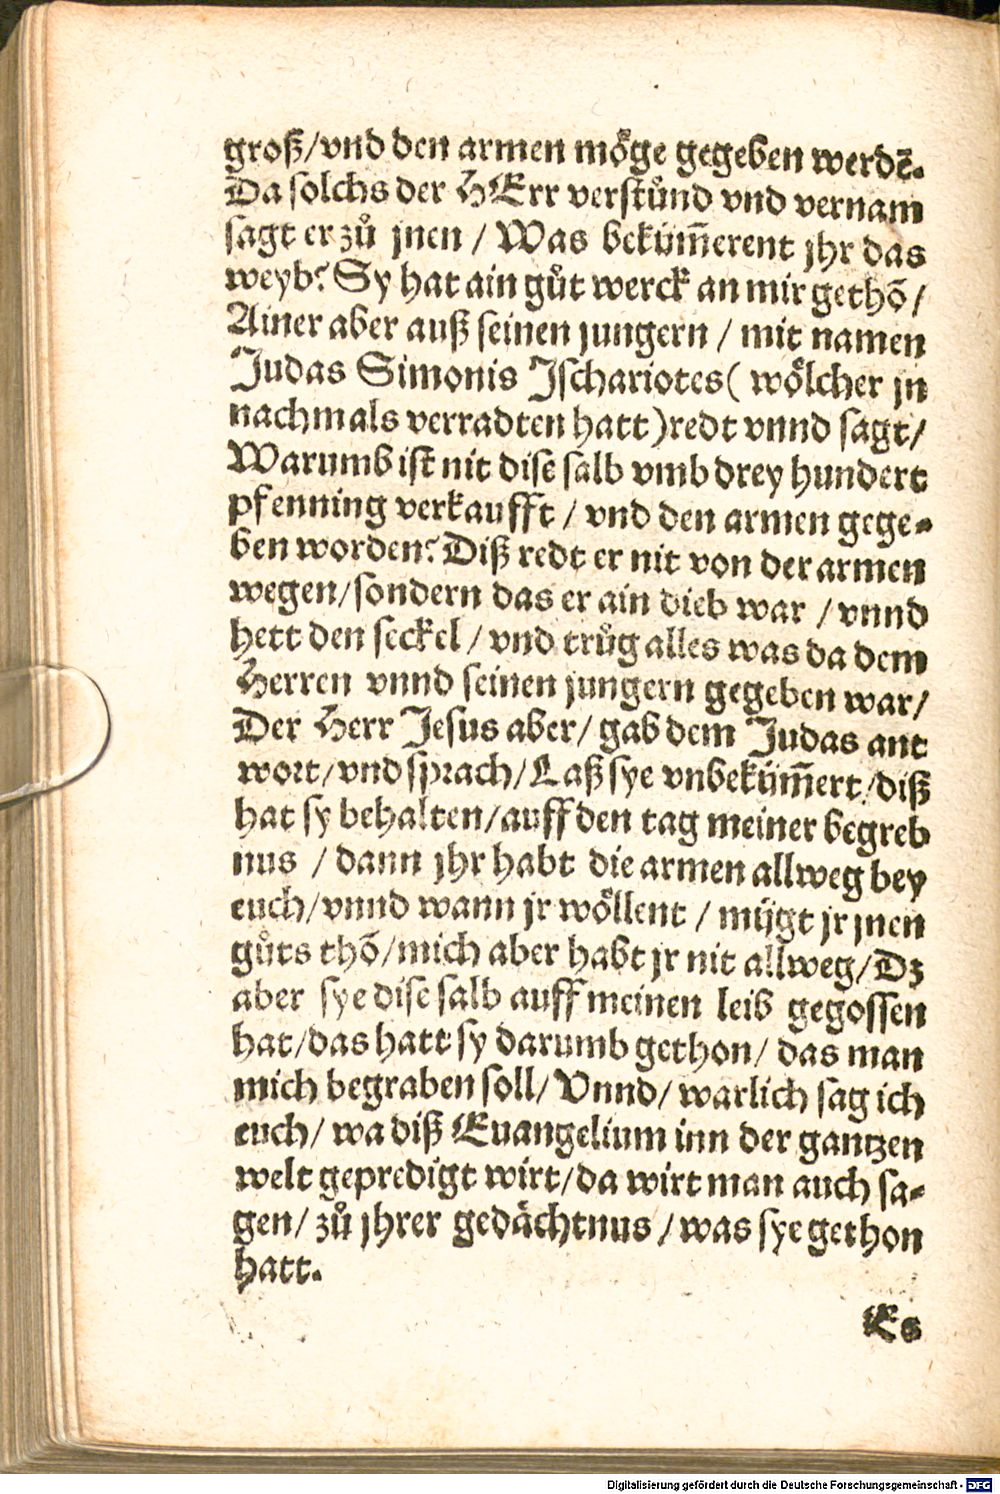 groß/vnd den armen möge gegeben werdē.
Da solchs der HErr verstůnd vnd vernam
sagt er zů jnen / Was bekümm̄erent jhr das
weyb? Sy hat ain gůt werck an mir gethō/
Ainer aber auß seinen jungern / mit namen
Judas Simonis Jschariotes( wölcher jn
nachmals verradten hatt)redt vnnd sagt/
Warumb ist nit dise salb vmb drey hundert
pfenning verkaufft / vnd den armen gege⸗
ben worden? Diß redt er nit von der armen
wegen/sondern das er ain dieb war / vnnd
hett den seckel / vnd trůg alles was da dem
Herren vnnd seinen jungern gegeben war/
Der Herr Jesus aber/ gab dem Judas ant
wort/vnd sprach/Laß sye vnbekümm̄ert/diß
hat sy behalten/auff den tag meiner begreb
nus / dann jhr habt die armen allweg bey
euch/vnnd wann jr wöllent / mügt jr jnen
gůts thō/mich aber habt jr nit allweg/Dz
aber sye dise salb auff meinen leib gegossen
hat/das hatt sy darumb gethon/ das man
mich begraben soll/ Vnnd/ warlich sag ich
euch/ wa diß Euangelium inn der gantzen
welt gepredigt wirt/da wirt man auch sa⸗
gen/ zů jhrer gedächtnus / was sye gethon
hatt.
Es
Digitalisierung gefördert durch die Deutsche Forschungsgemeinschaft - DFG